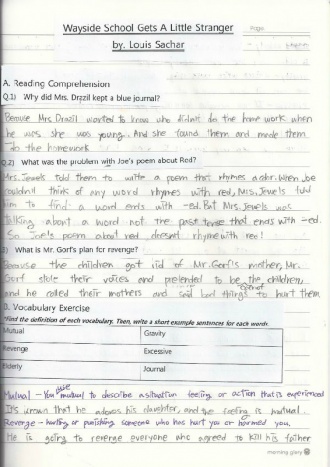 Wayside School Gets A Little Stranger
by. Louis Sachar
A. Reading Comprehension
Q.1) Why did Mrs. Drazil kept a blue journal?
Because Mrs Drazil wanted to know who didn't do the home work when
he was she was young. And she found them and made them
do the homework
Q.2) What was the problem with Joe's poem about Red?
Mrs. Jewels told them to write a poem that rhymes a color. When Joe
couldn't think of any word rhymes with red, Mrs. Jewels told
him to find a word ends with -ed. But Mrs. Jewels was
talking about a word not the past tense that ends with -ed.
So Joe's poem about red doesnt rhyme with red!
3) What is Mr. Gorf's plan for revenge?
Because the children got rid of Mr. Gorf's mother, Mr.
Gorf stole their voices and pretended to be the children,
and he called their mothers and said bad things to hurt them
B. Vocabulary Exercise
*Find the definition of each vocabulary. Then, write a short example sentences for each words.
Mutual Gravity
Revenge Excessive
Elderly Journal
Mutual - You use mutual to describe a situation feeling or action that is experienced
It's known that he adores his daughter, and the feeling is mutual.
Revenge - hurting or punishing someone who has hurt you or harmed you.
He is going to revenge everyone who agreed to kill his father
morning glory